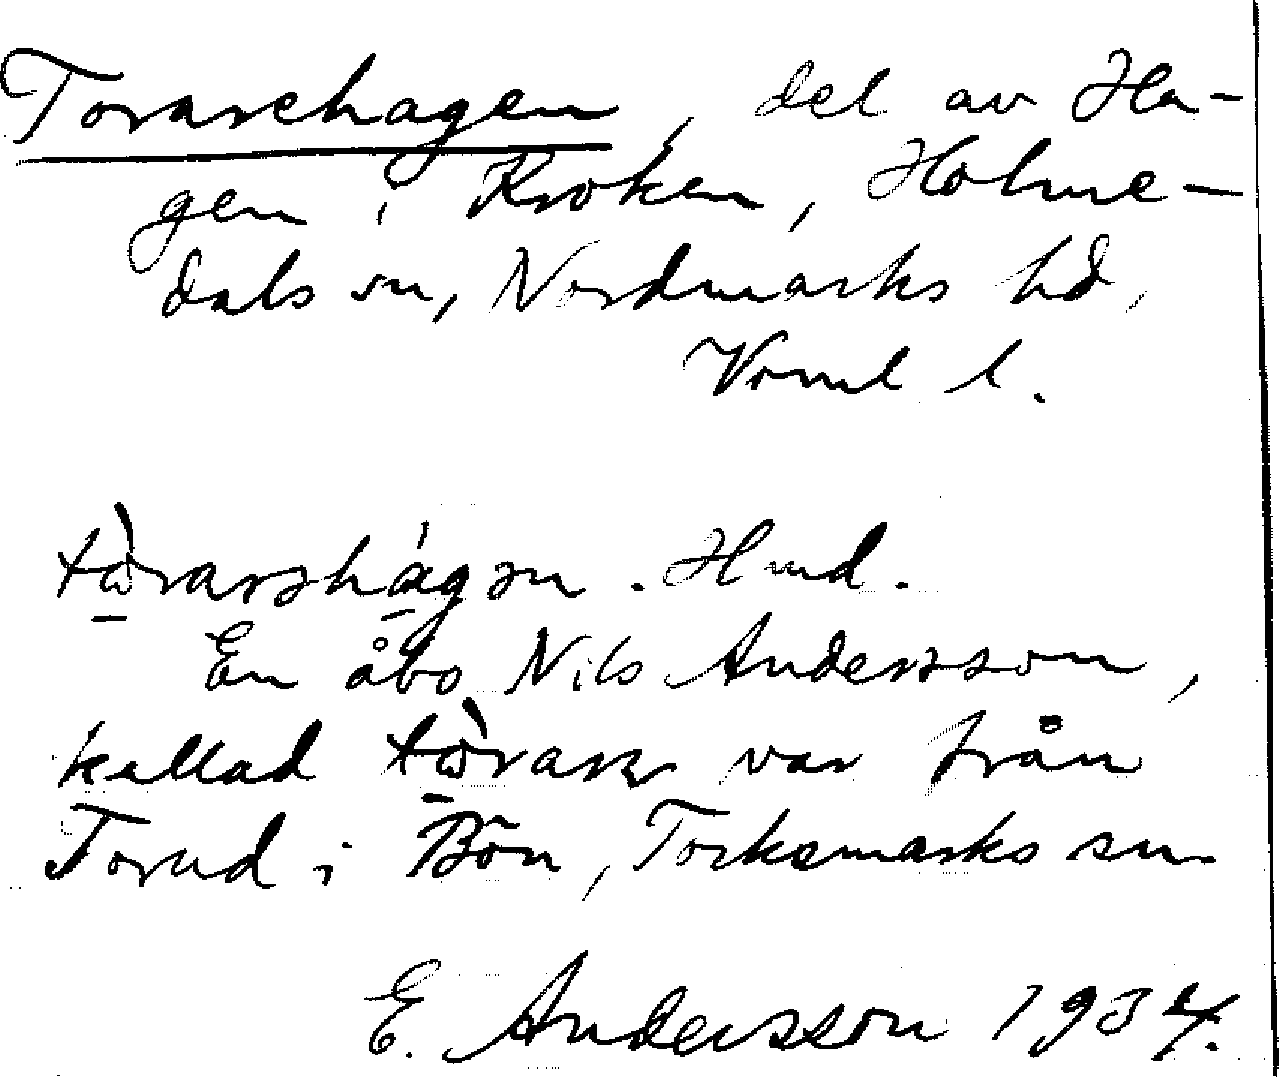 Torarehagen, del av Ha-
gen i Kroken, Holme-
dals sn, Nordmarks hd,
Vrml l.
En åbo Nils Andersson,
kallad var från
Torud i Bön, Torksmarks sn.
E. Andersson 1934.